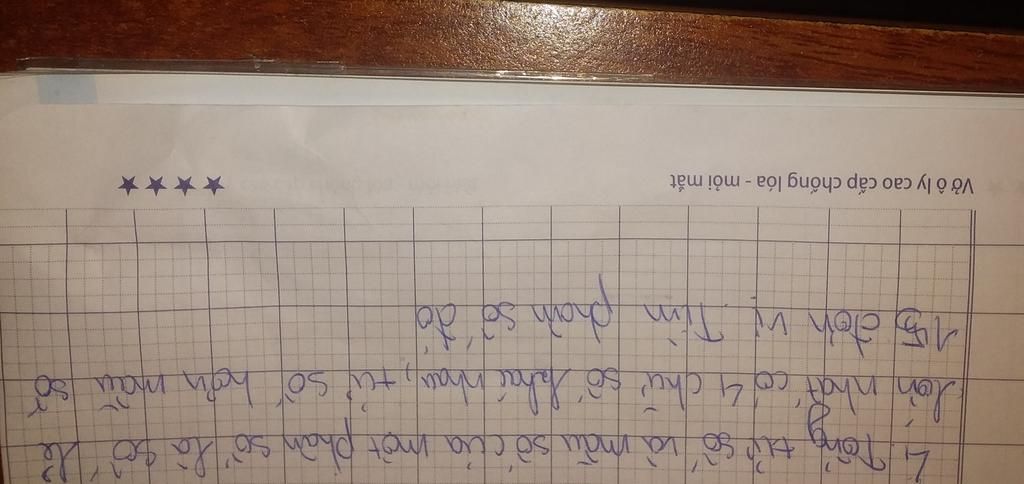 4. Tổng tử số và mẫu số của một phân số là số lẻ
lớn nhất có 4 chữ số khác nhau, tử số hơn mẫu số
15 đơn vị. Tìm phân số đó
Vở ô ly cao cấp chống lóa - mỏi mắt